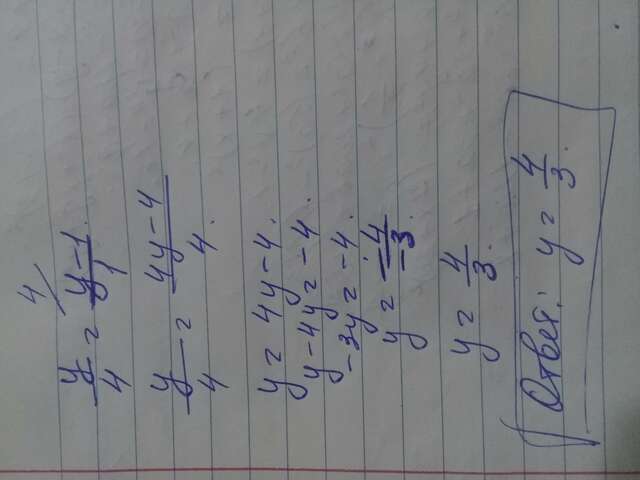 4/
y/4 = (y-1)/1.
y/4 = (4y-4)/4.
y = 4y-4.
y-4y = -4.
-3y = -4.
y = -4/-3.
y = 4/3.
Ответ: y = 4/3.